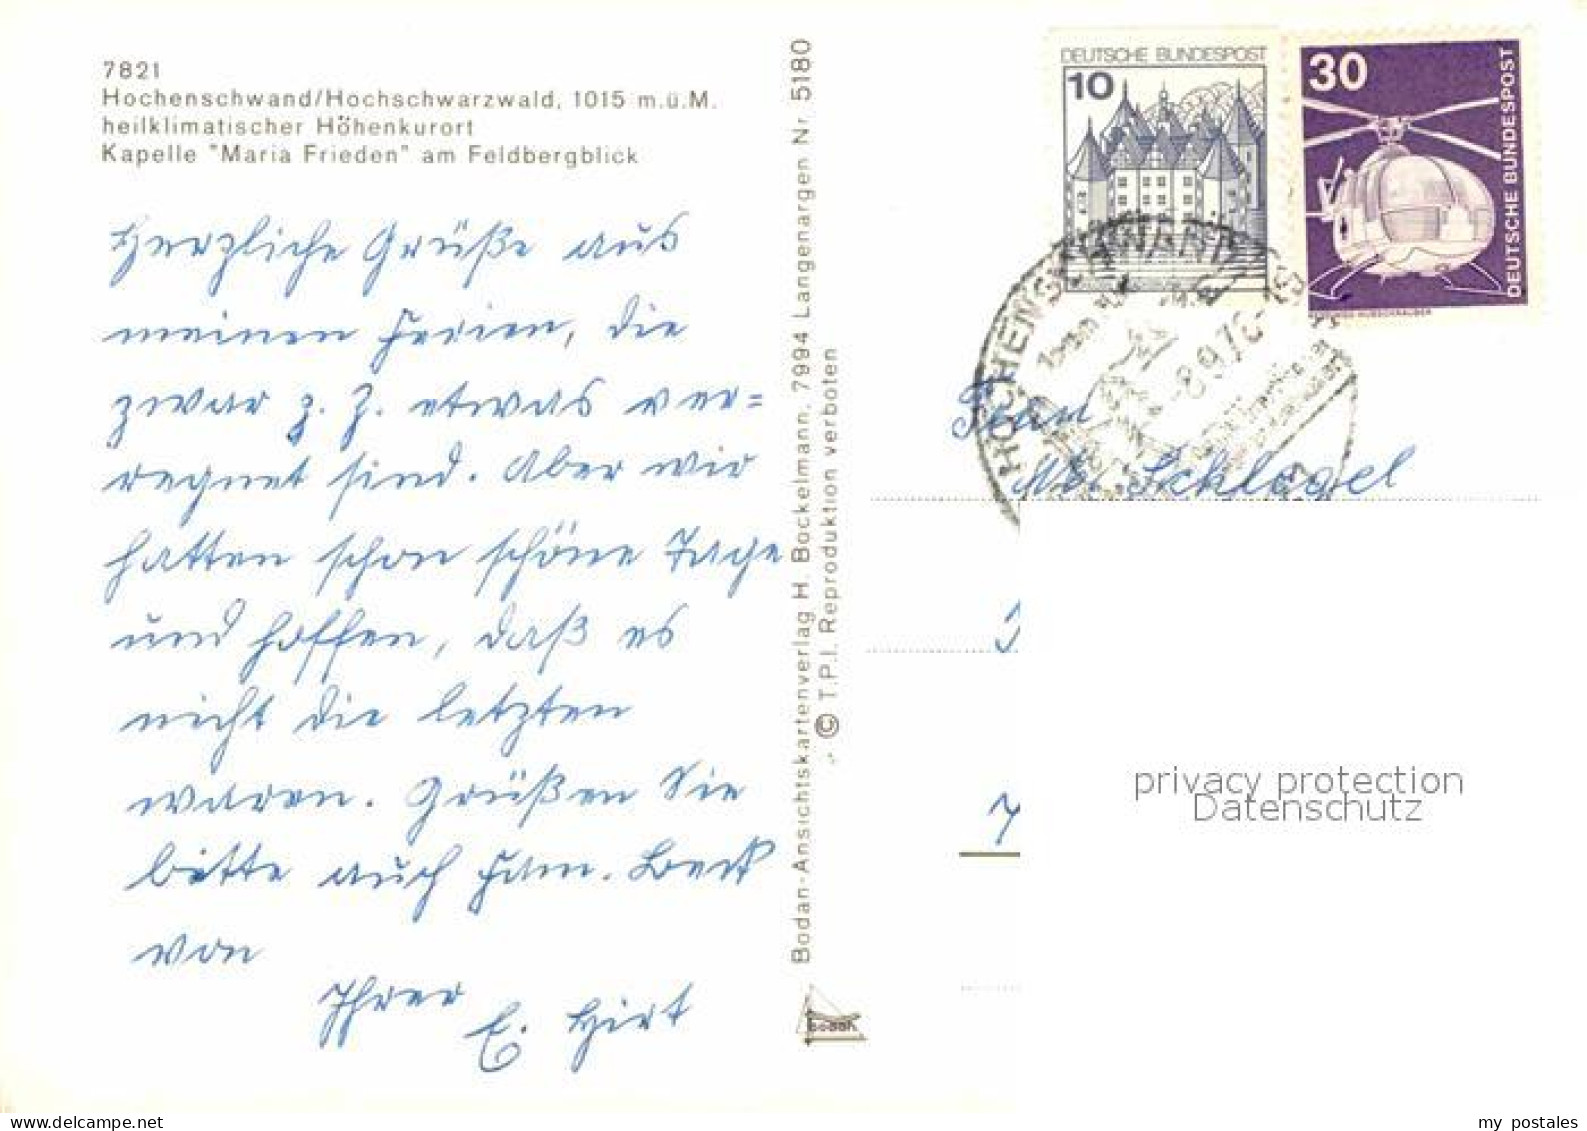 7821
Hochenschwand/Hochschwarzwald, 1015 m.ü.M.
heilklimatischer Höhenkurort
Kapelle "Maria Frieden" am Feldbergblick
Herzliche Grüße aus
meinen Ferien, die
zwar z. Z. etwas ver=
regnet sind. Aber wir
hatten schon schöne Tage
und hoffen, daß es
nicht die letzten
waren. Grüßen Sie
bitte auch Fam. Beck
von
Ihrer
E. Hirt
Bodan-Ansichtskartenverlag H. Bockelmann, 7994 Langenargen Nr. 5180
© T.P.I. Reproduktion verboten
bodan
DEUTSCHE BUNDESPOST
10
30
DEUTSCHE BUNDESPOST
HOCHENSCHWAND
-8.9.78-
Frau
Schlagel
7
privacy protection
Datenschutz
my postales